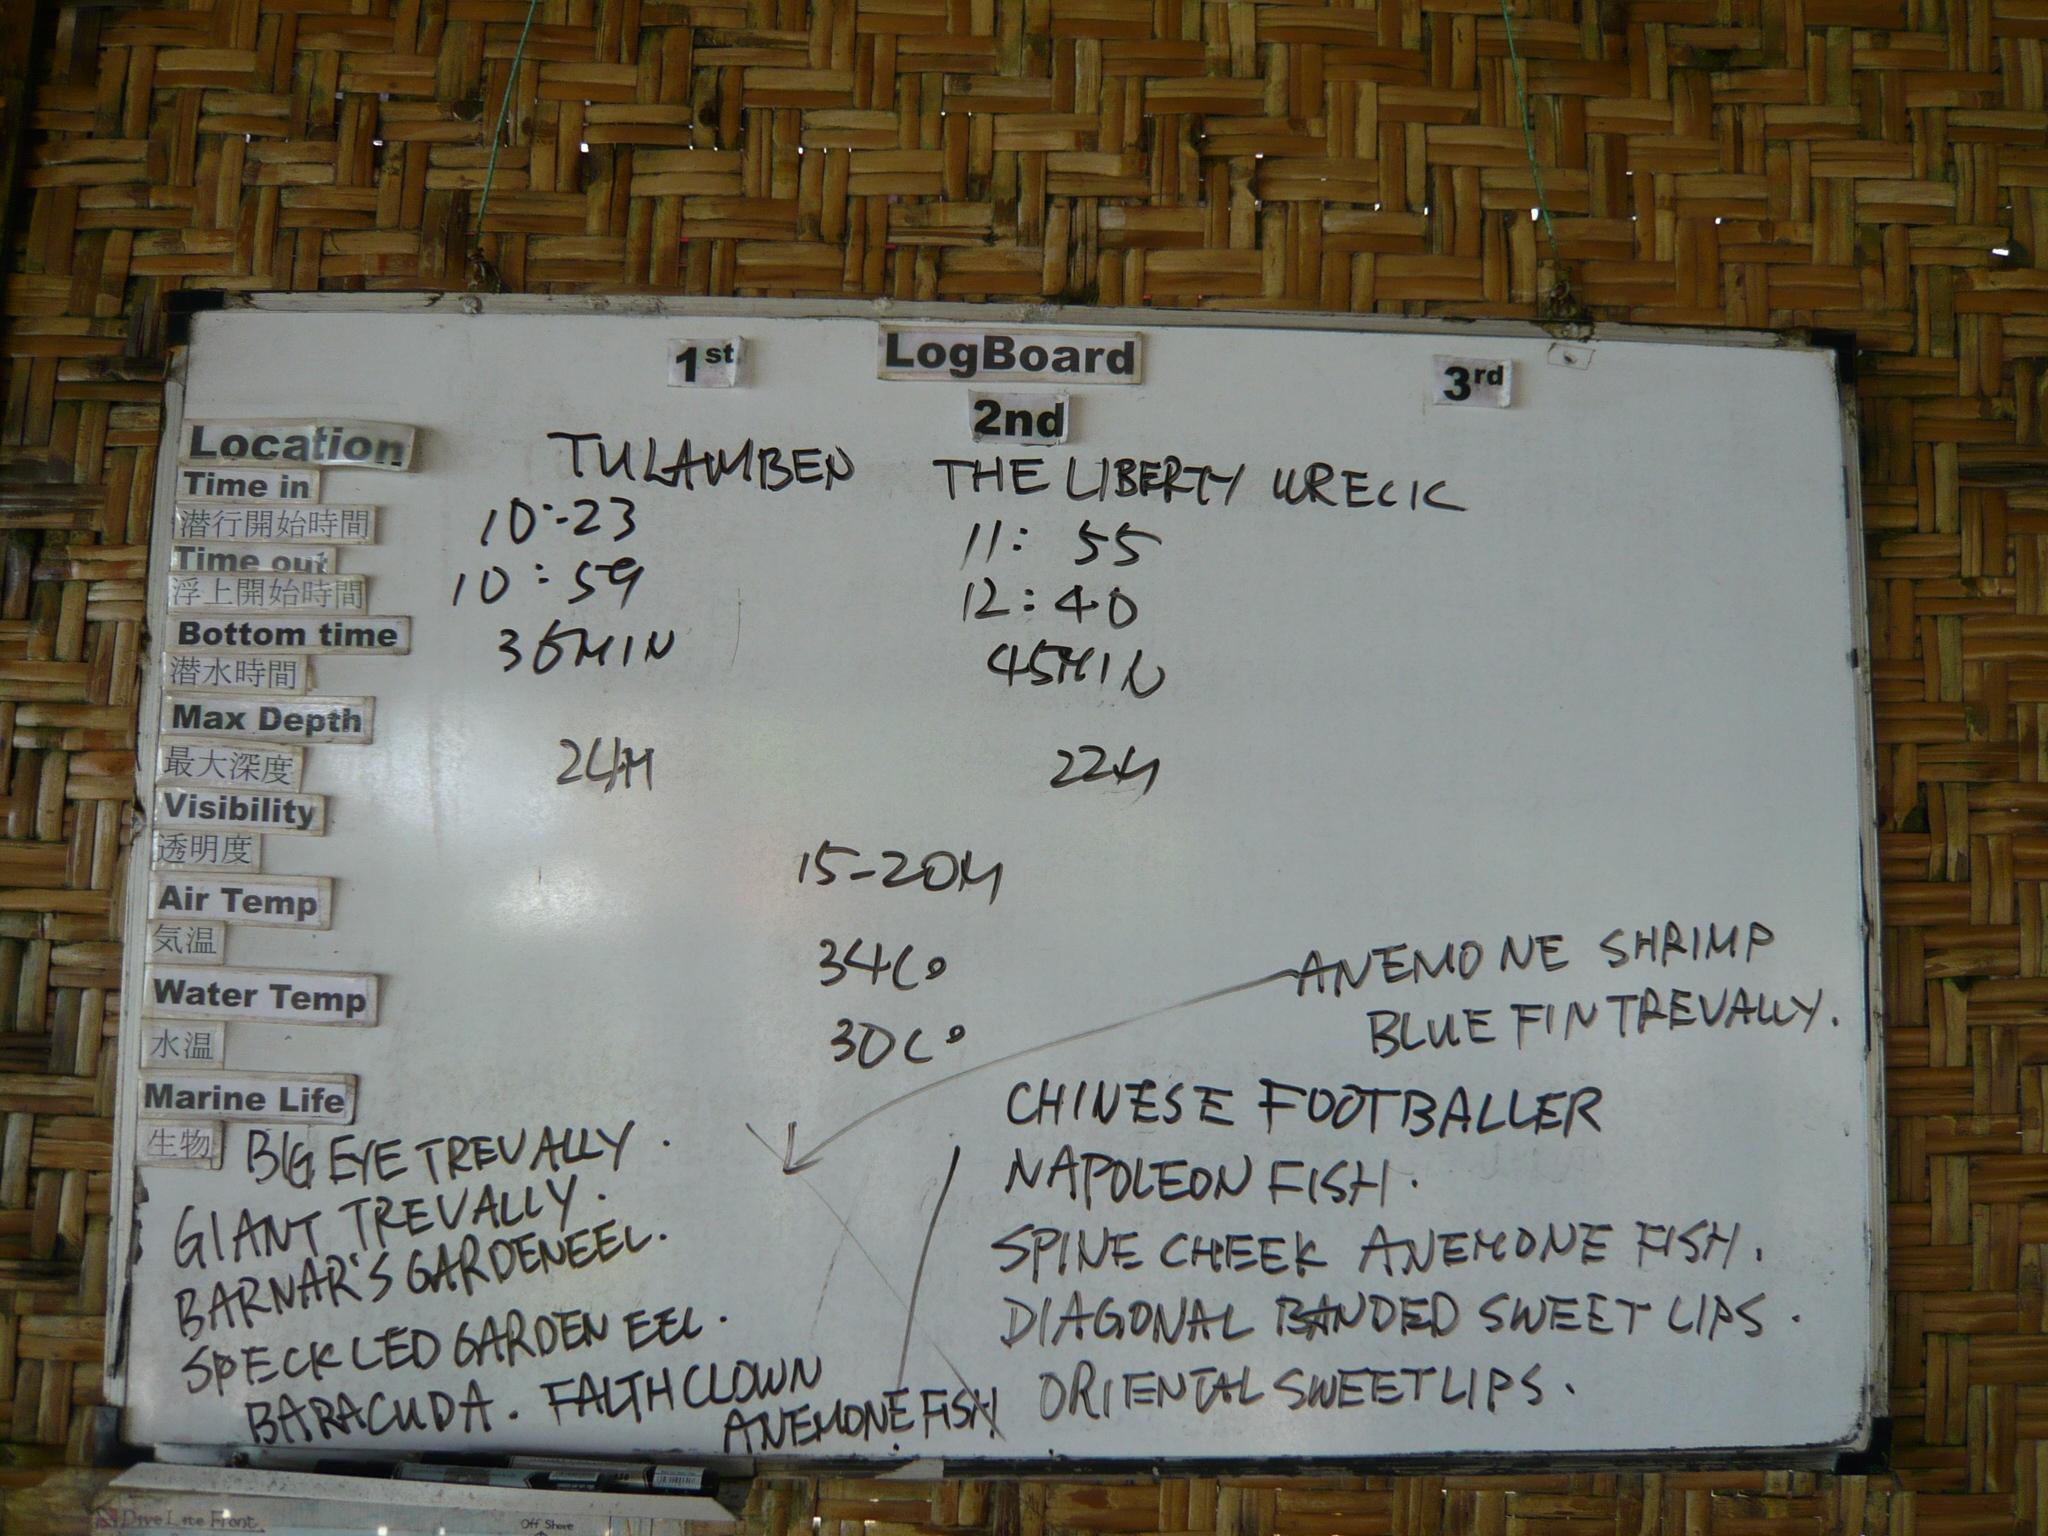 LogBoard
1st
2nd
3rd
Location
TULAMBEN THE LIBERTY WRECK
Time in
潜行開始時間
10:23
11:55
Time out
浮上開始時間
10:59
12:40
Bottom time
潜水時間
36MIN
45MIN
Max Depth
最大深度
24M
22M
Visibility
透明度
15-20M
Air Temp
気温
34C°
Water Temp
水温
30C°
ANEMONE SHRIMP
BLUE FIN TREVALLY.
Marine Life
生物
BIG EYE TREVALLY.
GIANT TREVALLY.
BARNAR'S GARDENEEL.
SPECKLED GARDEN EEL.
BARACUDA. FALTH CLOWN
ANEMONE FISH
CHINESE FOOTBALLER
NAPOLEON FISH.
SPINE CHEEK ANEMONE FISH.
DIAGONAL BANDED SWEET LIPS.
ORIENTAL SWEETLIPS.
Dive Lite Front
Off Shore